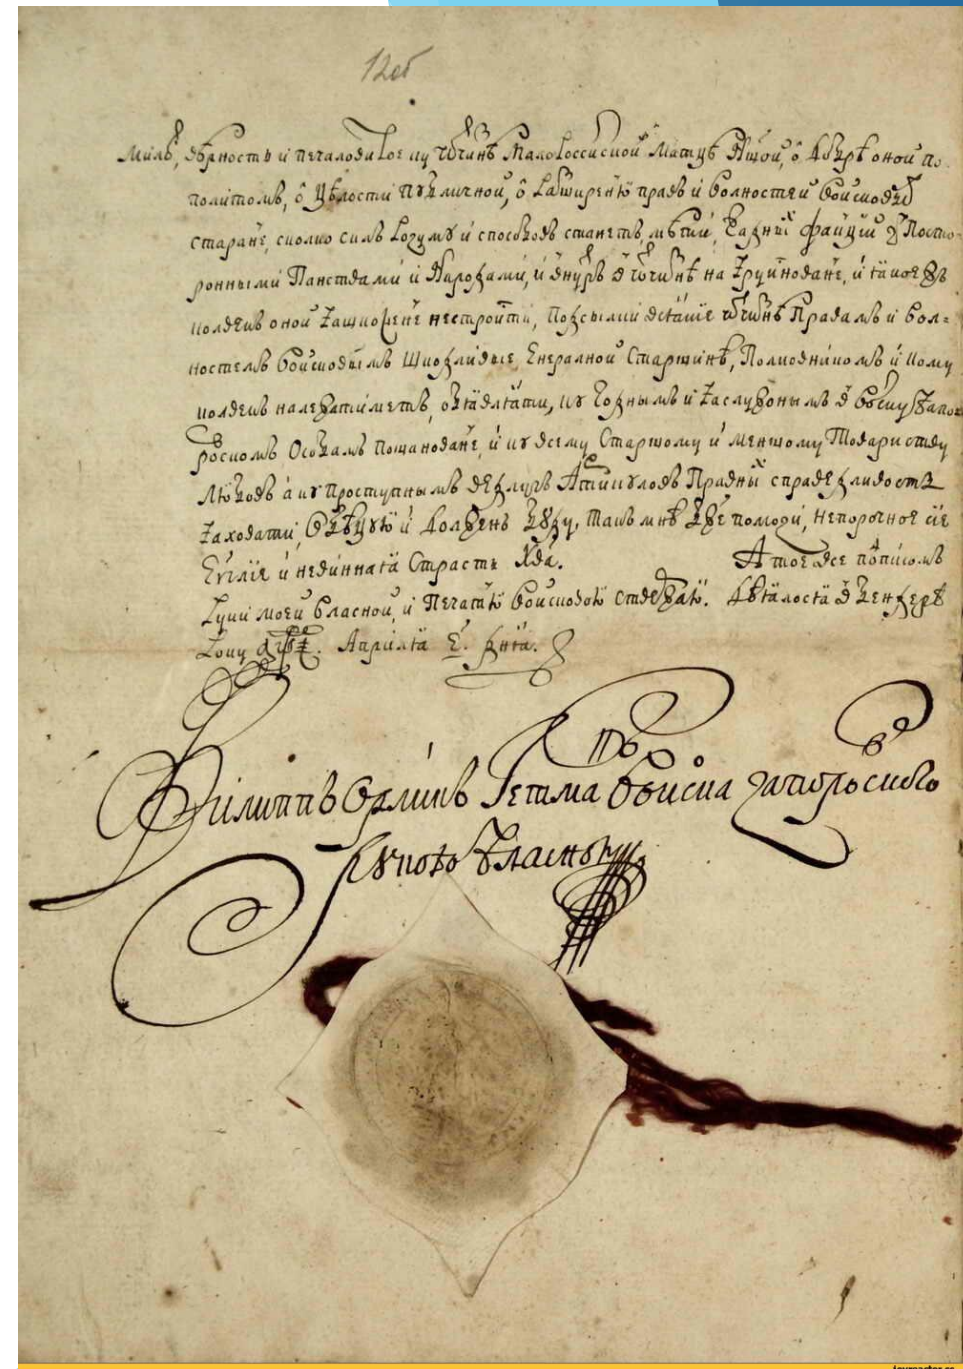 12об
Милъ, вѣрность и печаловитое ку ѿчизнѣ Малороссийской Матцѣ нашой, о добрѣ оной по-
политомъ, о цѣлости публичной, о разширеню правъ и волностей войсковыхъ
старанє, сколко силъ розуму и способовъ станетъ, мѣти, жадных факций з посто-
ронными панствами и народами, и внутръ в ѿчизнѣ на зруйнованє, и якоежъ
колвекъ оной зашкоженє нестроити, подсилки всякіе ѿчизнѣ правамъ и вол-
ностемъ войсковымъ шкодливые, Енералной Старшинѣ, Полковникомъ и кому
колвекъ належатиметъ, обявляти, ку годнымъ и заслужонымъ в войску Запо
розкомъ Особамъ пошанованє, и ку всему Старшому и меншому Товариству
любовъ а ку проступнымъ ведлугъ Артикуловъ Правных справедливость
заховати, обѣцую и должень буду, такъ мнѣ Бже помози, непорочное сіе
Еѵгліе и невинная Страсть Хва. А тое все по͛писомъ
руки моей власной, и Печатю войсковою ствержаю. Дѣялося в Бендерѣ
Року ҂аѱі. Апріля е. дня.
Филиппъ Орликъ Гетма Войска запорозского
рукою власною